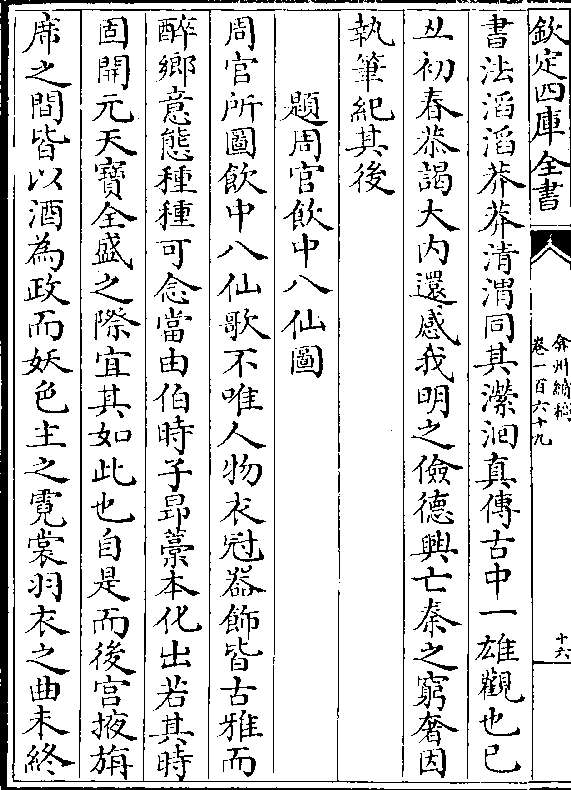 欽定四庫全書
弇州續稿
卷一百六十九
十六
書法滔滔莽莽清渭同其瀠洄真傳古中一雄觀也已
丑初春恭謁大内還感我明之儉德興亡秦之窮奢因
執筆紀其後
題周官飲中八仙圖
周官所圖飲中八仙歌不唯人物衣冠器飾皆古雅而
醉鄉意態種種可念當由伯時子昻藁本化出若其時
固開元天寳全盛之際宜其如此也自是而後宫掖旃
席之間皆以酒為政而妖色主之霓裳羽衣之曲未終